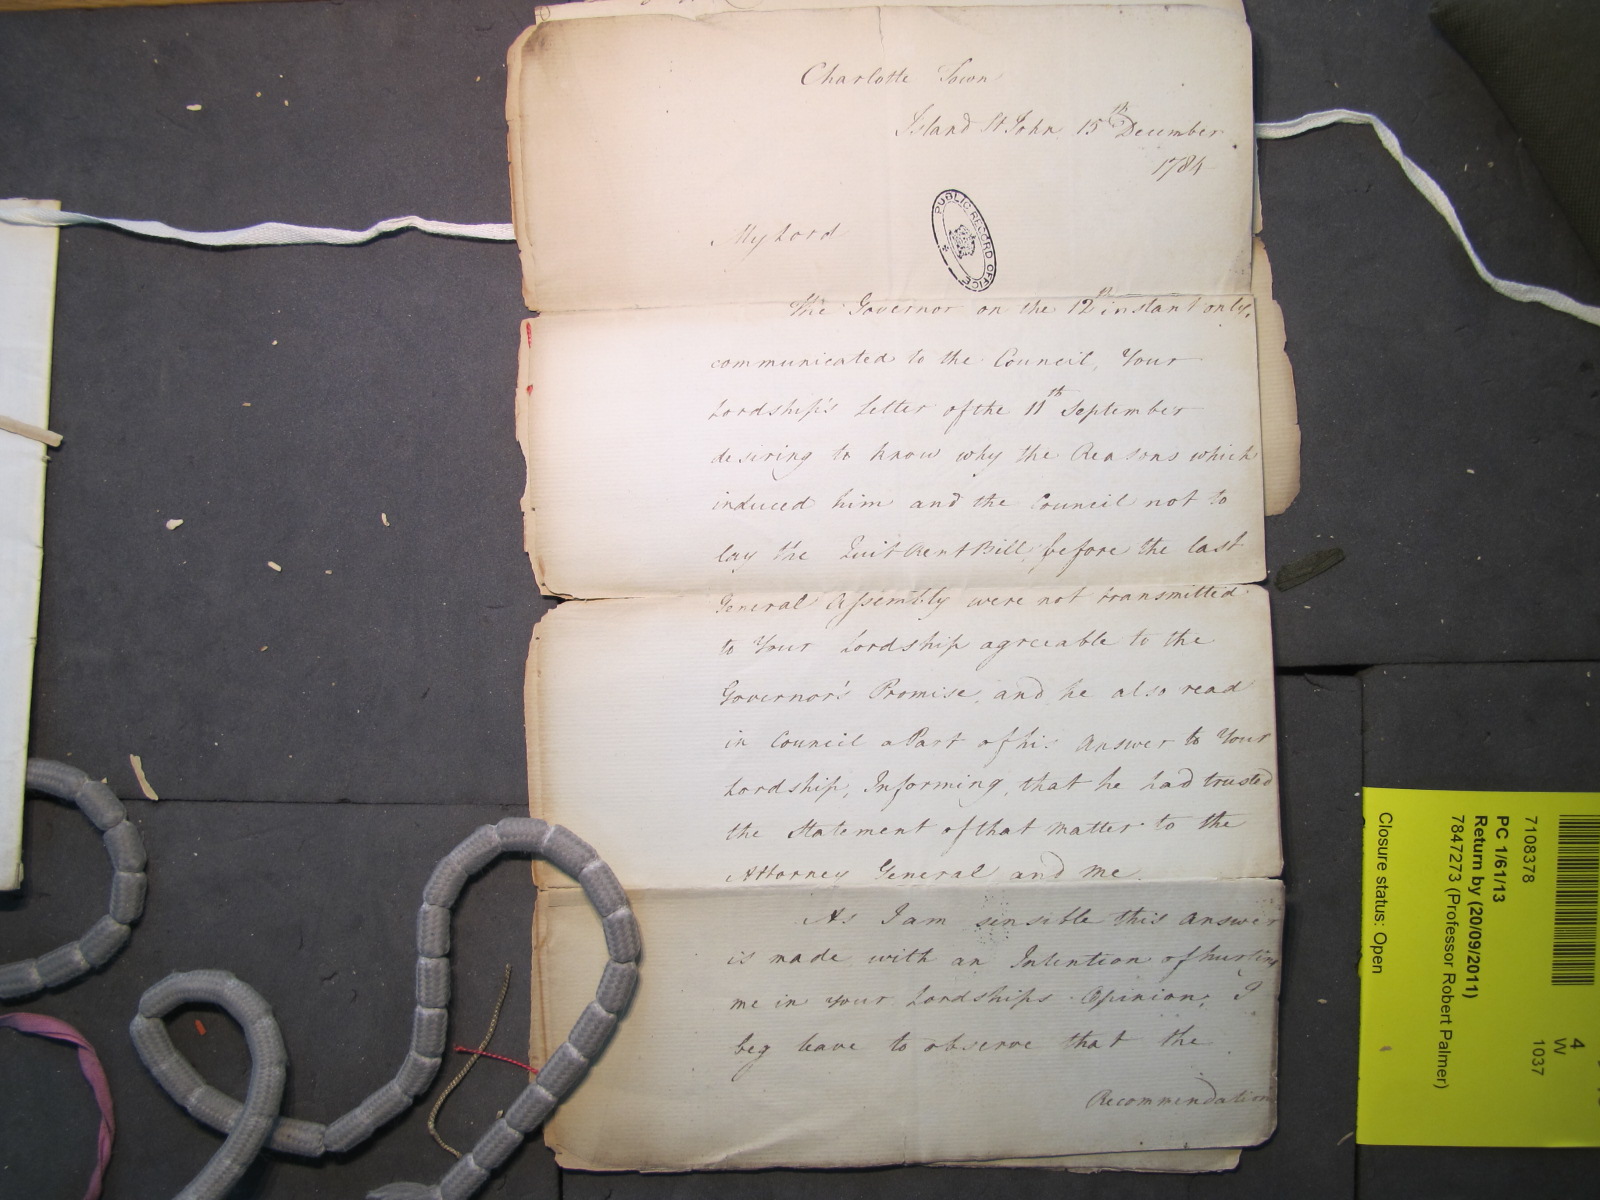 Charlotte Town
Island St John 15th December
1784
PUBLIC RECORD OFFICE
My Lord
The Governor on the 12th instant only,
communicated to the Council, Your
Lordship's Letter of the 11th September
desiring to know why the Reasons which
induced him and the Council not to
lay the Quit Rent Bill, before the last
General Assembly were not transmitted
to Your Lordship agreeable to the
Governor's Promise, and he also read
in Council a Part of his Answer to Your
Lordship, Informing, that he had trusted
the Statement of that Matter to the
Attorney General and me.
As I am sensible this Answer
is made with an Intention of hurting
me in your Lordships Opinion, I
beg leave to observe that the
Recommendation
7108378
PC 1/61/13
Return by (20/09/2011)
7847273 (Professor Robert Palmer)
Closure status: Open
4
W
1037